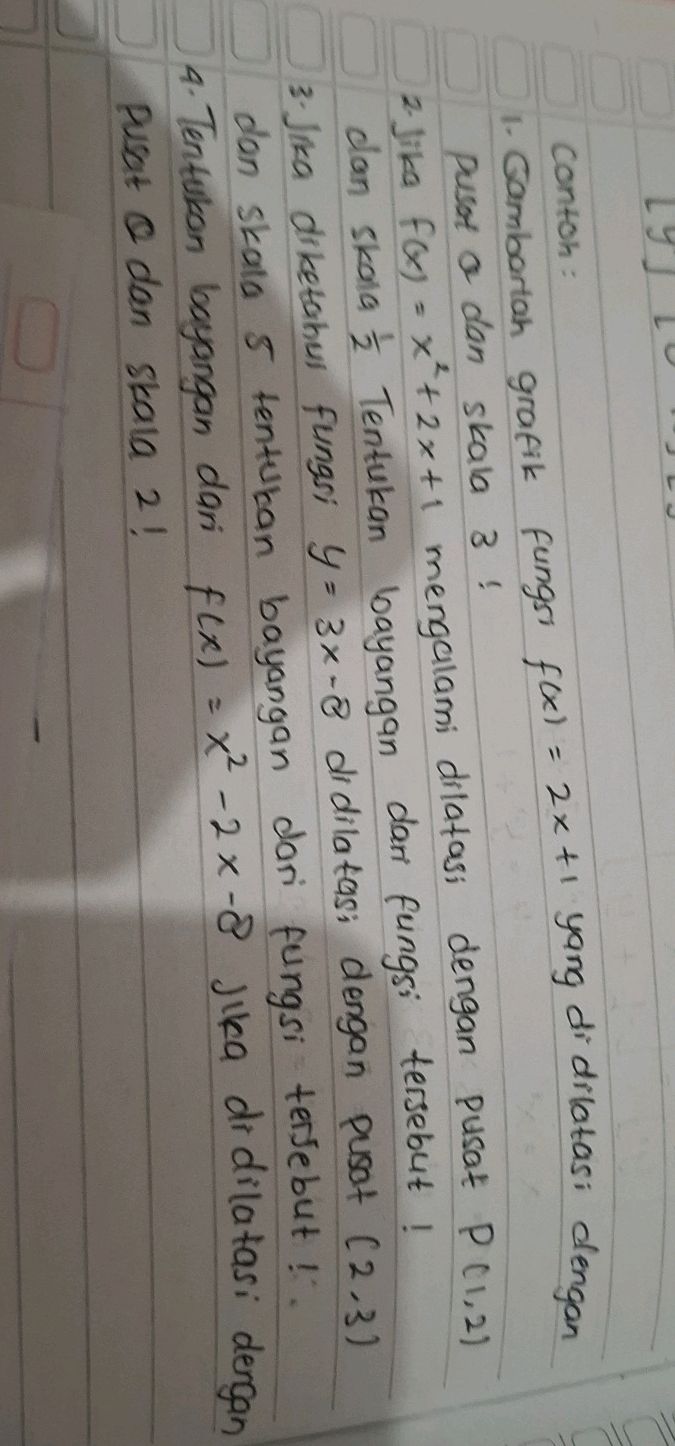 Contoh :
1. Gambarlah grafik fungsi f(x) = 2x+1 yang di dilatasi dengan
pusat O dan skala 3 !
2. Jika f(x) = x² + 2x + 1 mengalami dilatasi dengan pusat P(1,2)
dan skala 1/2 Tentukan bayangan dari fungsi tersebut !
3. Jika diketahui fungsi y = 3x - 8 di dilatasi dengan pusat (2,3)
dan skala 5 tentukan bayangan dari fungsi tersebut !
4. Tentukan bayangan dari f(x) = x² - 2x - 8 Jika di dilatasi dengan
pusat O dan skala 2 !